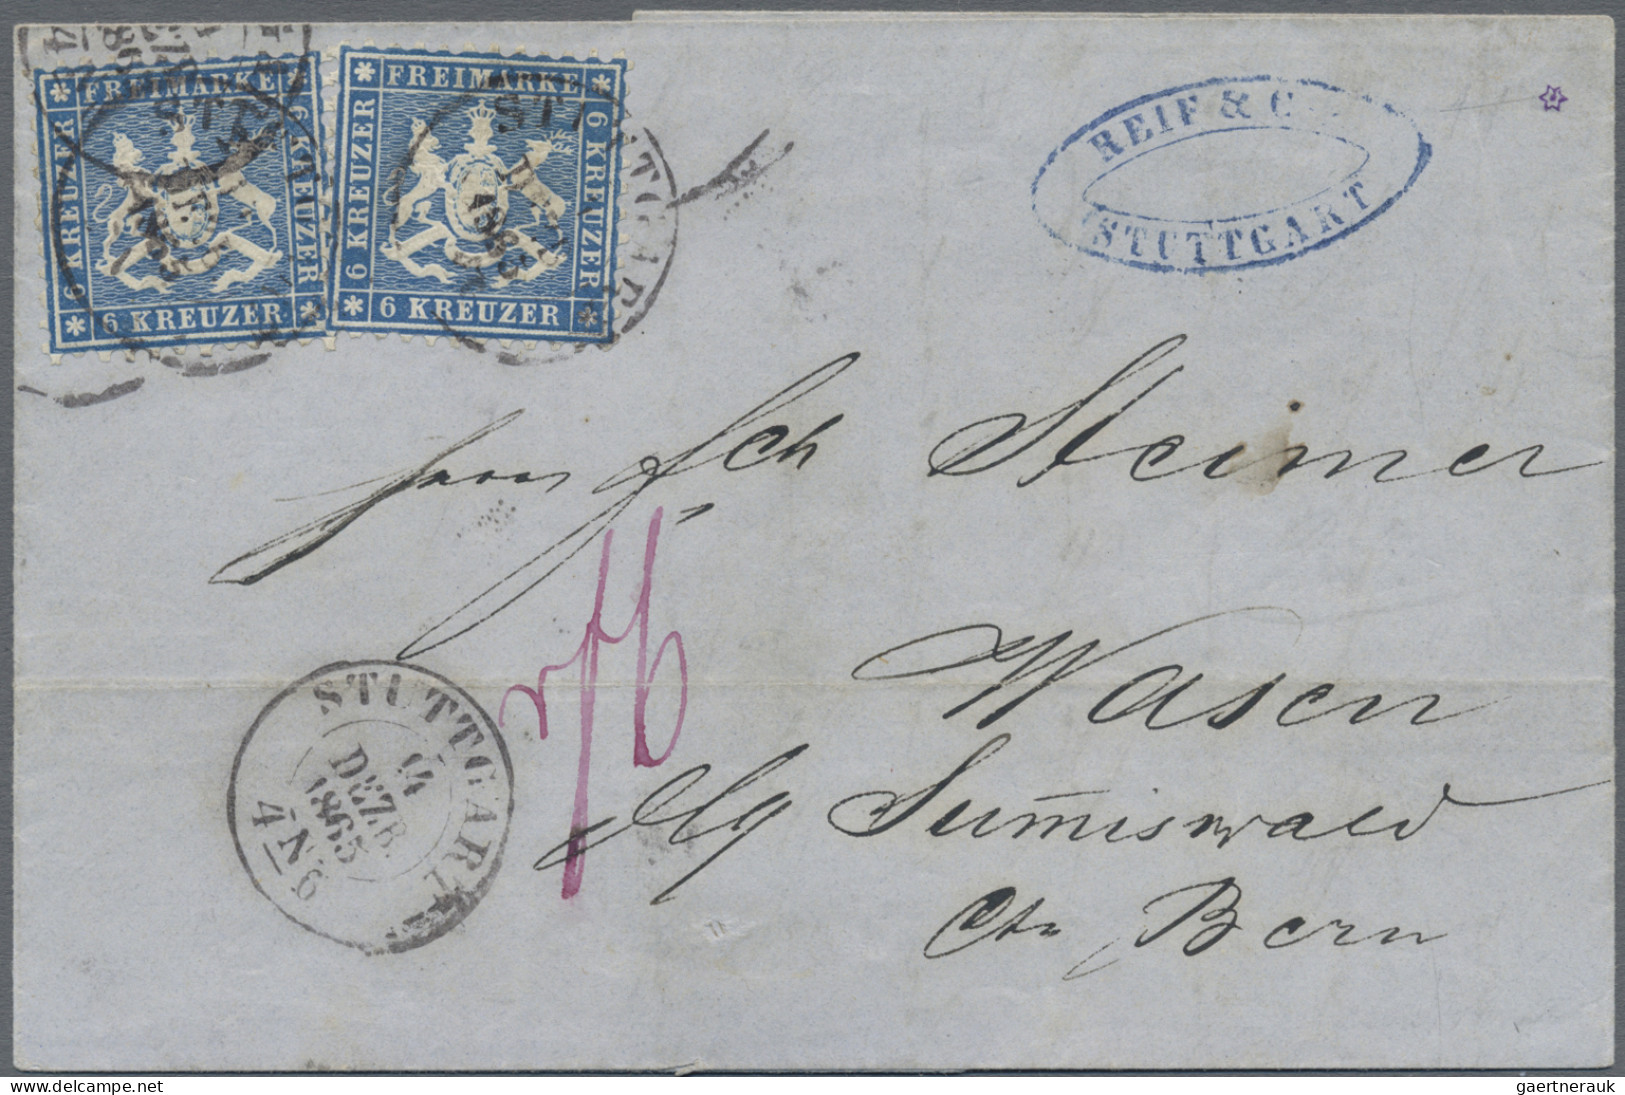 FREIMARKE
6 KREUZER
6 KREUZER
6 KREUZER
FREIMARKE
6 KREUZER
6 KREUZER
6 KREUZER
STUTTGART
DEZ
1865
REIF & C
STUTTGART
Herrn Sch Steimer
Wasen
Sumiswald
Ctn Bern
STUTTGART
DEZR.
1865
4 N 9
gaertnerauk